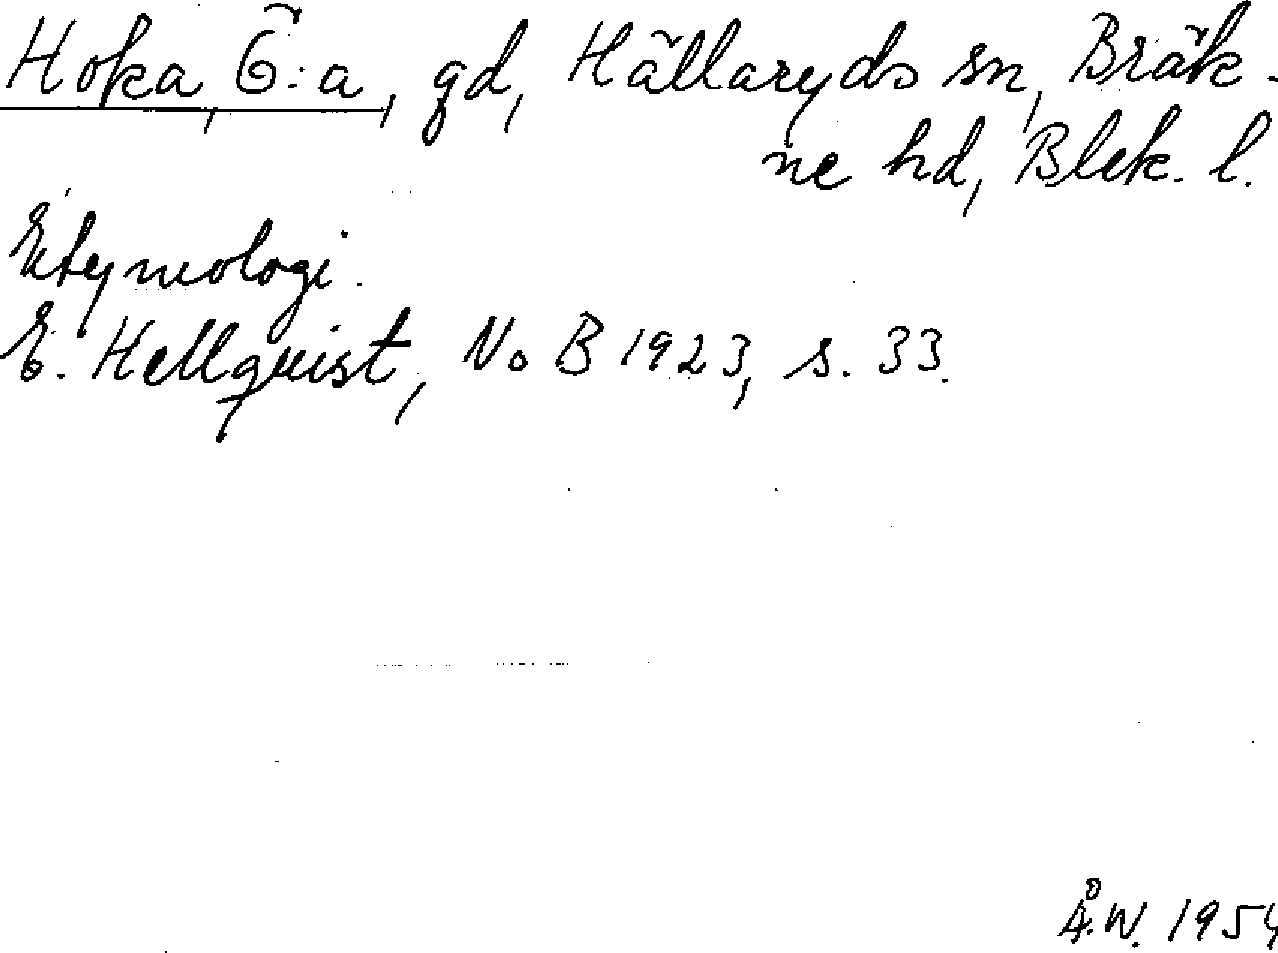 Hoka, Ö:a, gd, Hällaryds sn, Bräk-
ne hd, Blek. l.
Etymologi.
E. Hellquist, NoB 1923, s. 33.
Å.W. 1954